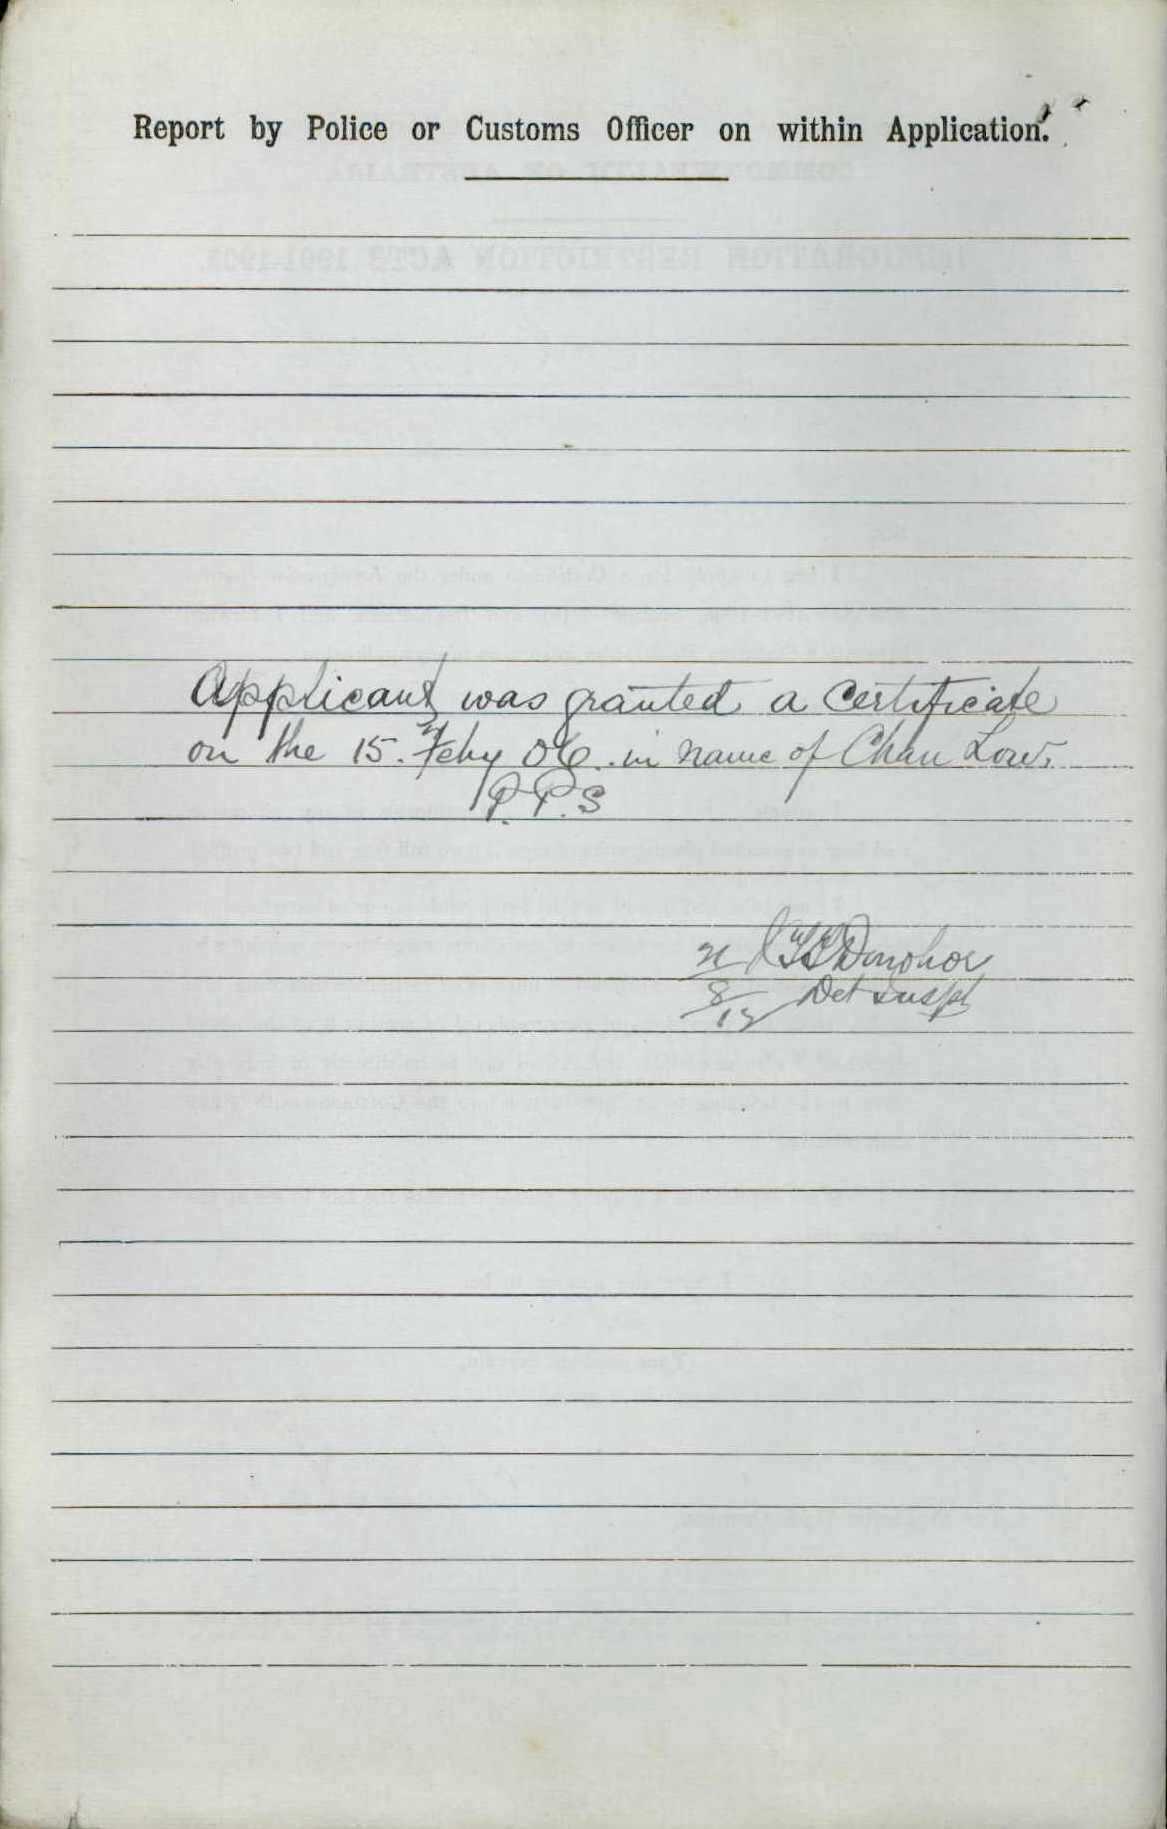 Report by Police or Customs Officer on within Application.
Applicant was granted a Certificate
on the 15. Feby 06. in name of Chan Low.
P.P.S
Donohoe
8/12 Det Inspr